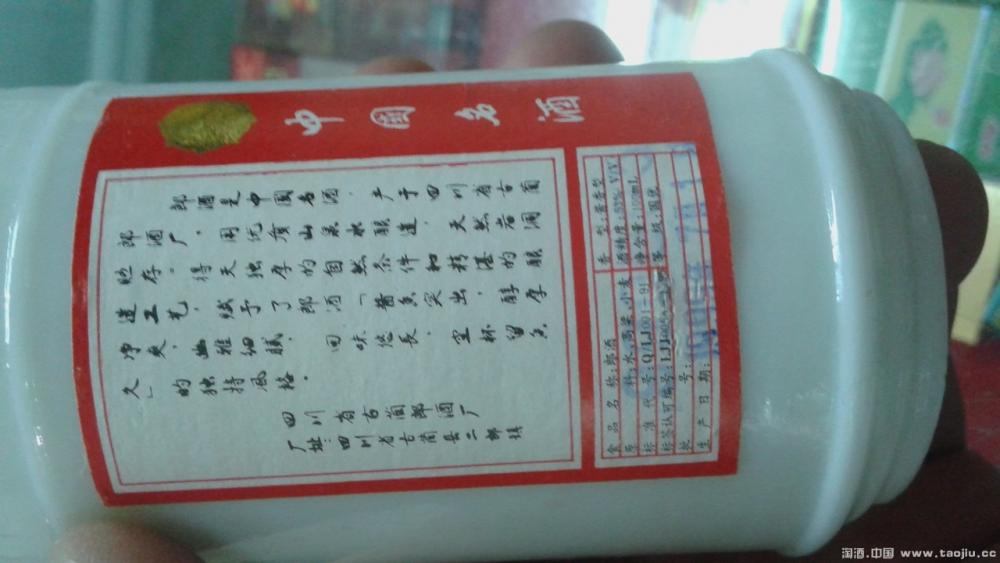 中国名酒
郎酒是中国名酒,产于四川省古蔺
郎酒厂,用优质山泉水酿造,天然岩洞
贮存。得天独厚的自然条件和精湛的酿
造工艺,赋予了郎酒「酱香突出,醇厚
净爽,幽雅细腻,回味悠长,空杯留香
久」的独特风格。
四川省古蔺郎酒厂
厂址:四川省古蔺县二郎镇
食品名称:郎酒
香型:酱香型
原料:水、高粱、小麦
酒精度:53% V/V
标准代号:Q/LJ001-91
净含量:100mL
标签认可编号:LJ
等级:国优
批号:
生产日期:
淘酒.中国 www.taojiu.cc